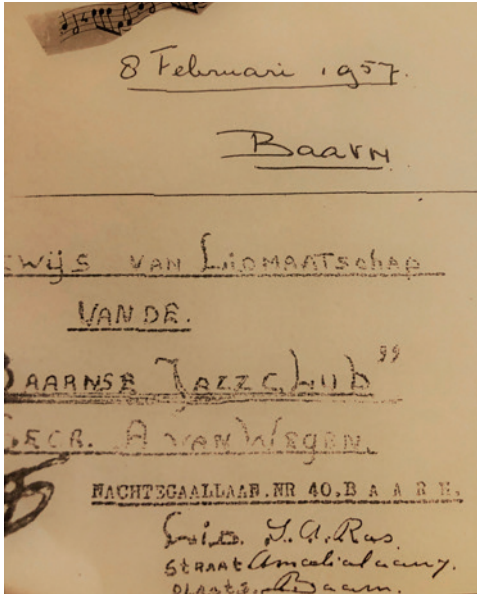 8 Februari 1957.
Baarn
ewijs van Lidmaatschap
van de.
Baarnse Jazzclub"
Secr. A van Wegen.
NACHTEGAALLAAN.NR 40.B A A R N.
Lid. J.A. Ras
straat Amalialaan
plaats. Baarn.